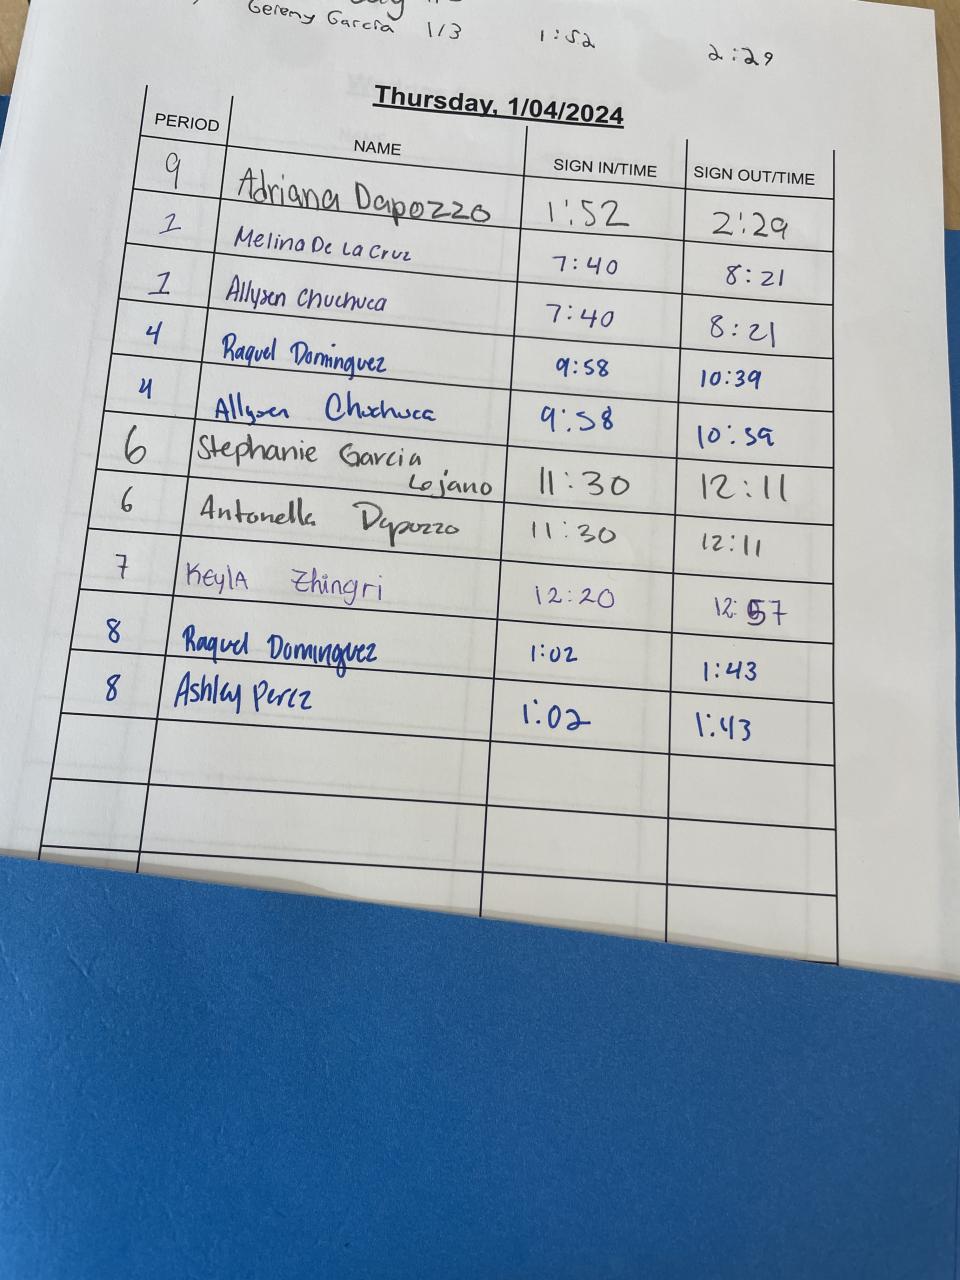 Gereny Garcia 1/3 1:52 2:29
Thursday, 1/04/2024
PERIOD NAME SIGN IN/TIME SIGN OUT/TIME
9 Adriana Dapozzo 1:52 2:29
1 Melina De La Cruz 7:40 8:21
1 Allysen Chuchuca 7:40 8:21
4 Raquel Dominguez 9:58 10:39
4 Allysen Chuchuca 9:58 10:39
6 Stephanie Garcia
Lojano 11:30 12:11
6 Antonella Dapozzo 11:30 12:11
7 KeylA Zhingri 12:20 12:57
8 Raquel Dominguez 1:02 1:43
8 Ashley Perez 1:02 1:43